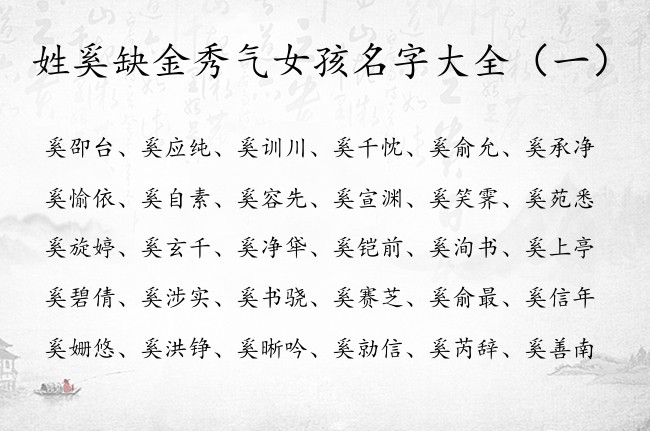 姓奚缺金秀气女孩名字大全（一）
奚邵台、奚应纯、奚训川、奚千忱、奚俞允、奚承净
奚愉依、奚自素、奚容先、奚宣渊、奚笑霁、奚苑悉
奚旋婷、奚玄千、奚净荜、奚铠前、奚洵书、奚上亭
奚碧倩、奚涉实、奚书骁、奚赛芝、奚俞最、奚信年
奚姗悠、奚洪铮、奚晰吟、奚勍信、奚芮辞、奚善南